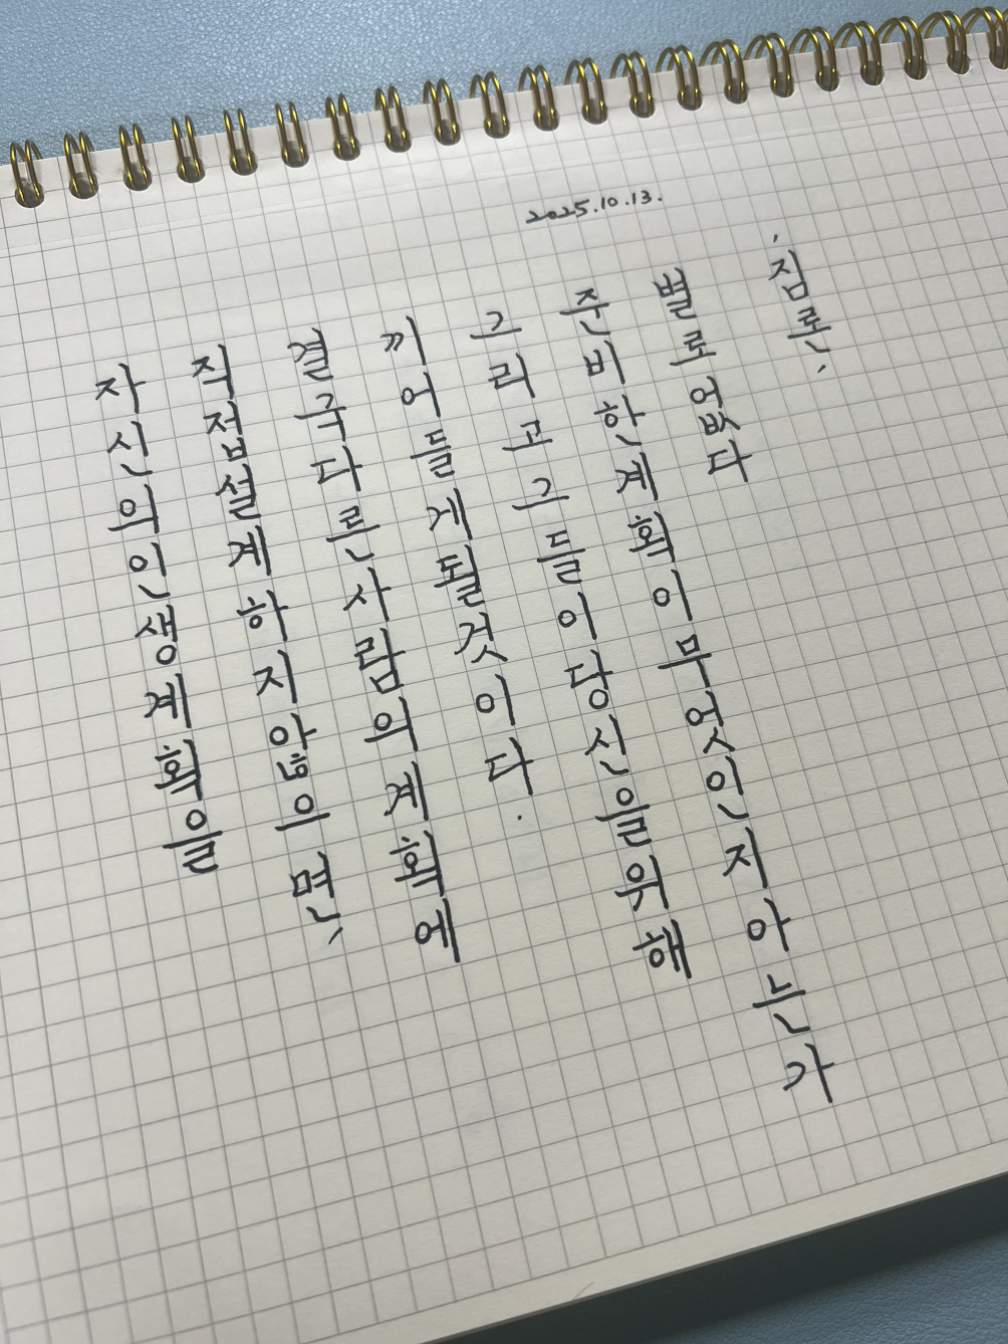 2025.10.13.
자신의인생계획을
직접설계하지않으면,
결국다른사람의계획에
끼어들게될것이다.
그리고그들이당신을위해
준비한계획이무엇인지아는가
별로없다
'짐론'